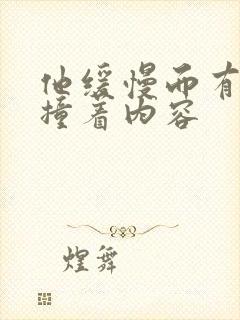 他缓慢而有
撞着内容
煌舞